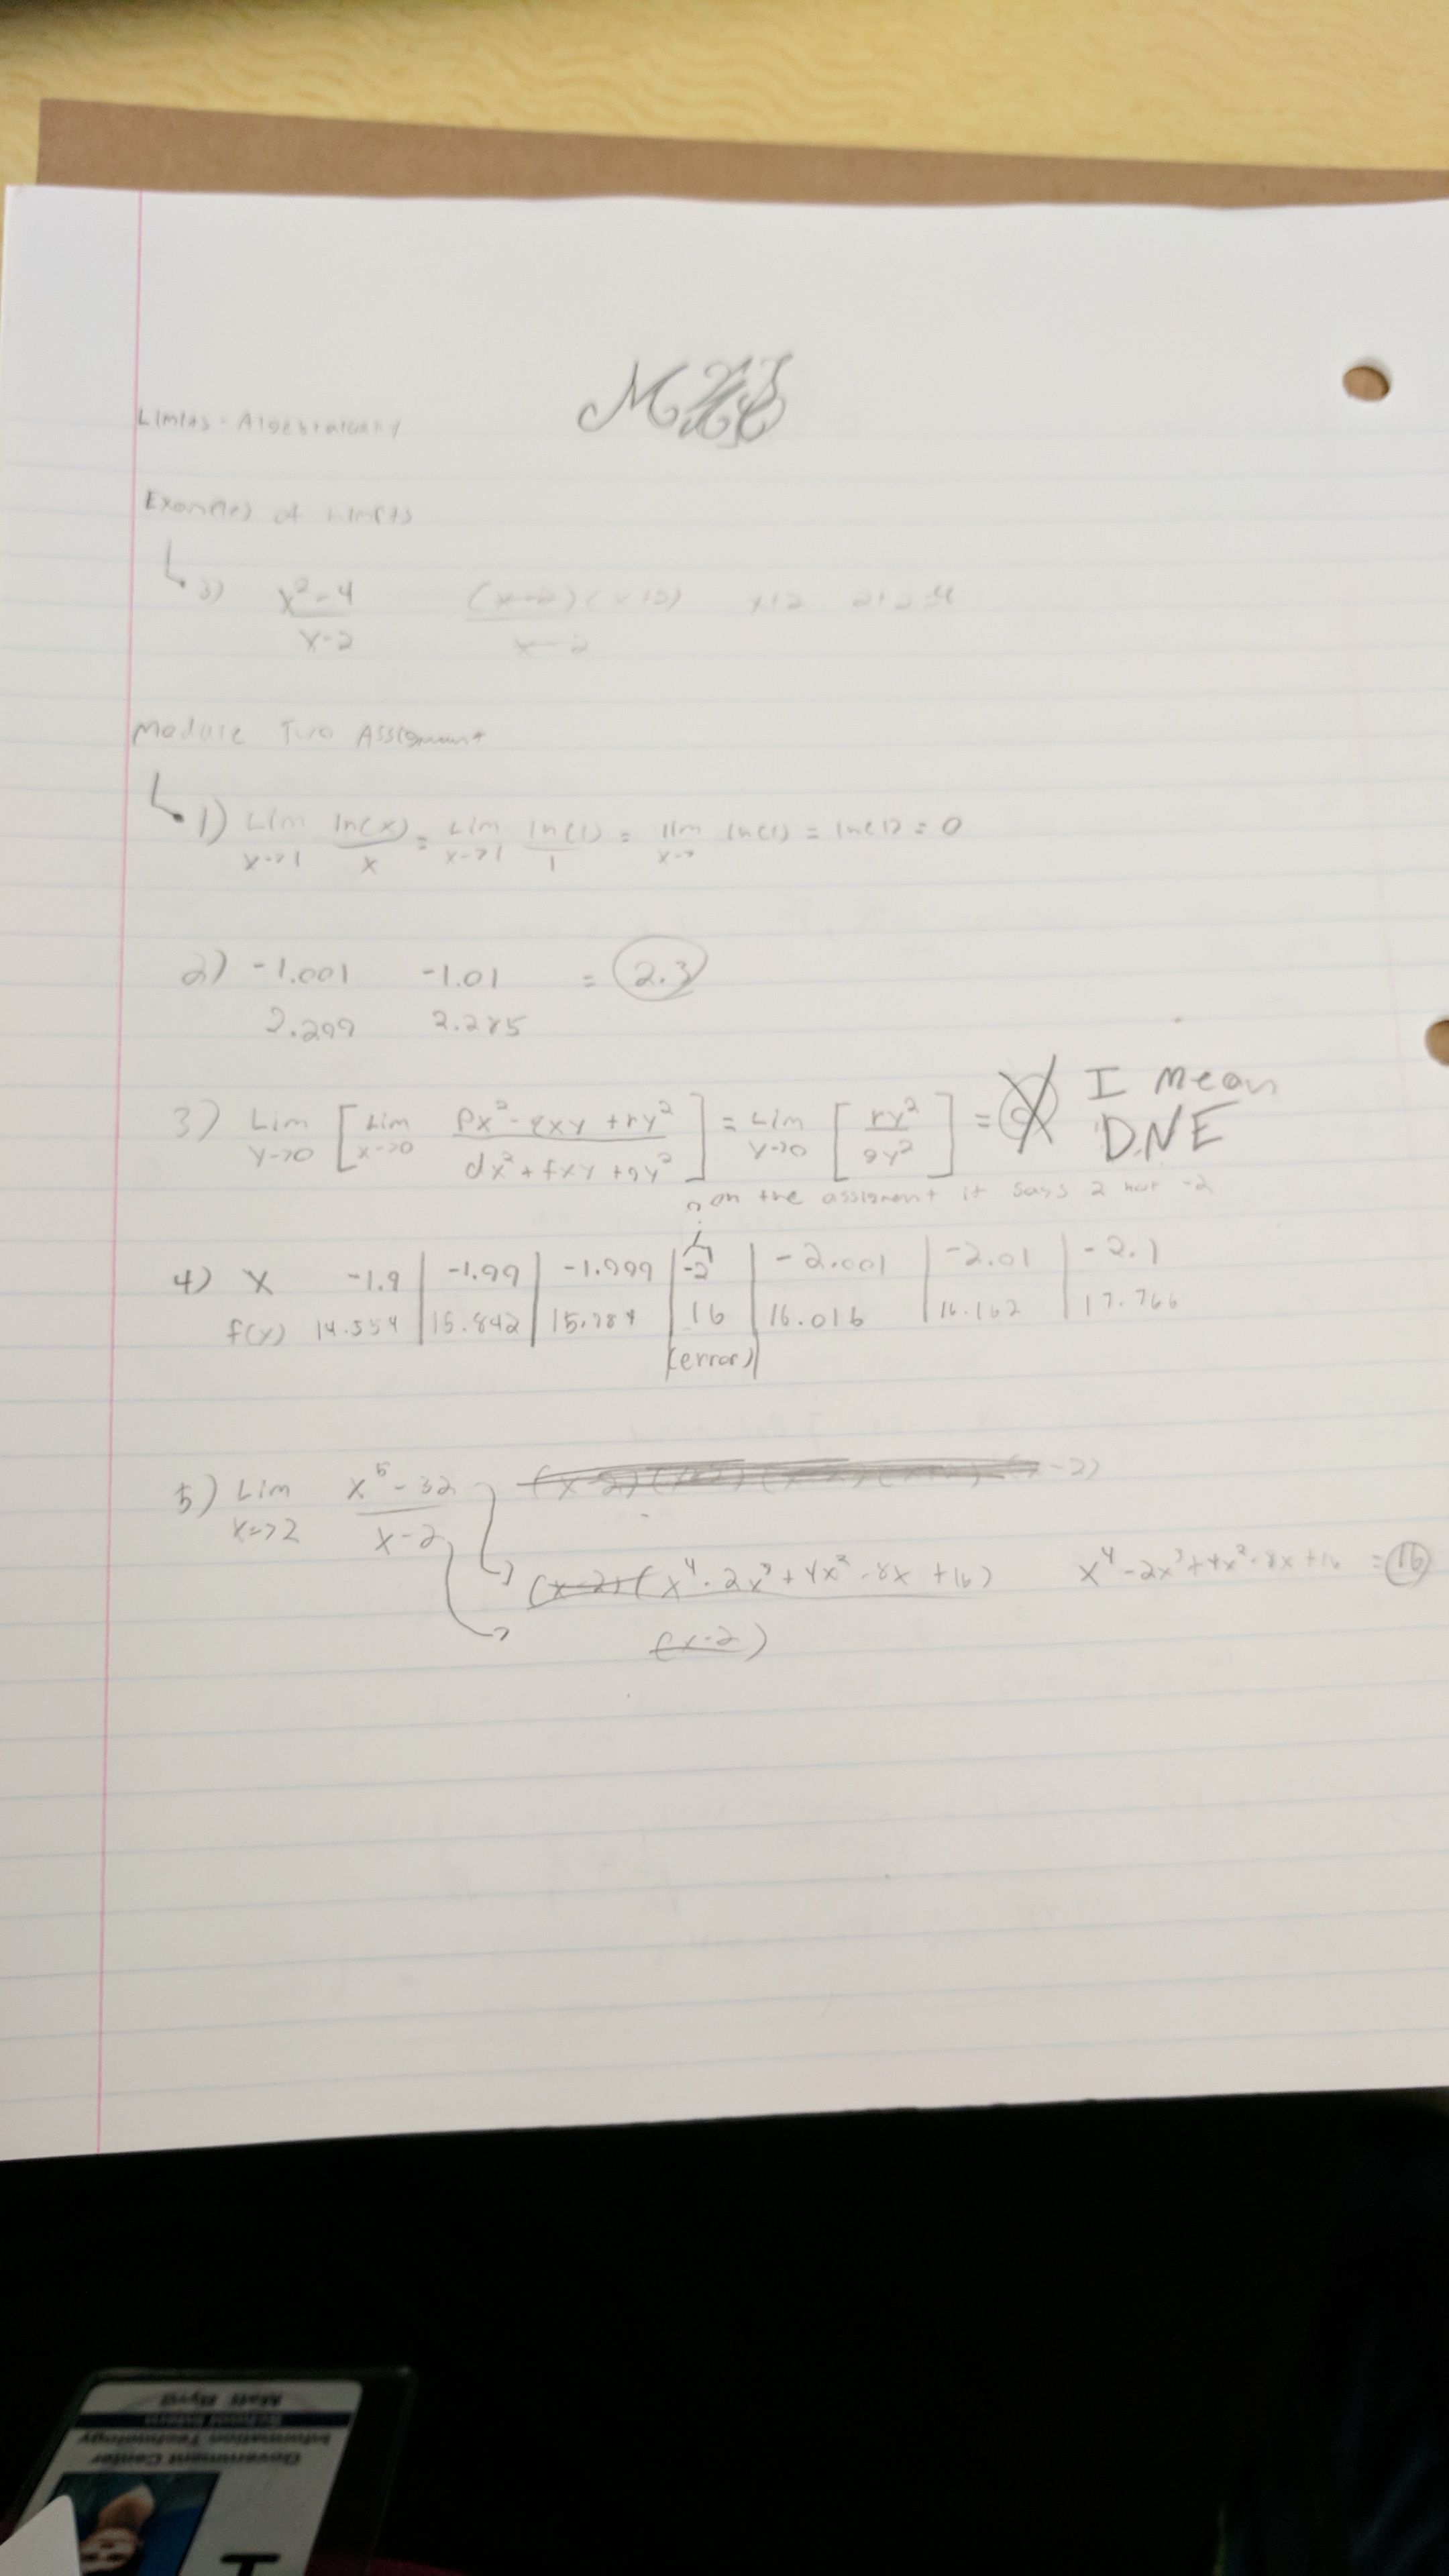 Limits - Algebraically
Examples of Limits
3) x²-4 / x-2   (x-2)(x+2) / x-2   x+2   2+2=4
Module Two Assignment
1) Lim x->1 ln(x)/x = Lim x->1 ln(1)/1 = lim x-> ln(1) = ln(1) = 0
2) -1.001 -1.01 = 2.3
2.299 2.285
3) Lim y->0 [Lim x->0 px²-qxy+ry² / dx²+fxy+gy²] = Lim y->0 [ry² / gy²] = I mean
DNE
? on the assignment it says 2 not -2
4) x -1.9 | -1.99 | -1.999 | -2 | -2.001 | -2.01 | -2.1
f(x) 14.554 | 15.842 | 15.984 | 16 | 16.016 | 16.162 | 17.766
(error)
5) Lim x->2 x⁵-32 / x-2   -2)
(x-2)(x⁴-2x³+4x²-8x+16) / (x-2)   x⁴-2x³+4x²-8x+16 = 16
Government Center
Information Technology
School Intern
Matt Byrd